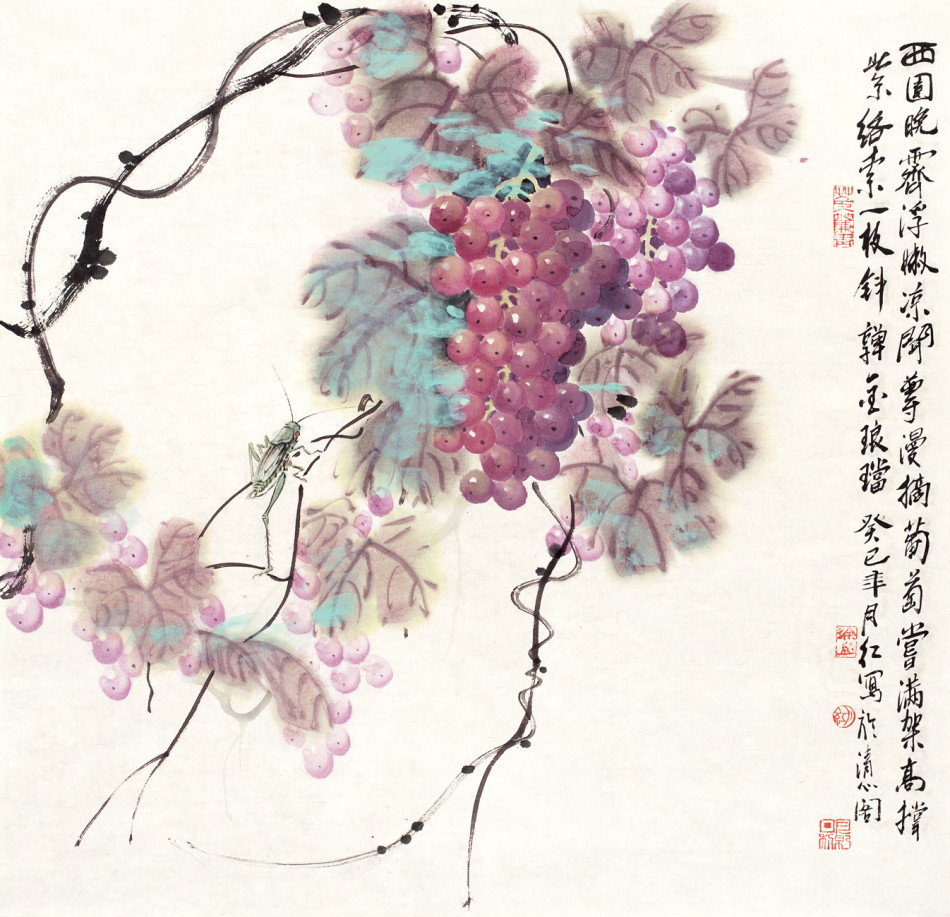 西園晚霽浮嫩凉開尊漫摘葡萄嘗滿架高撑
紫絡索一枝斜嚲金琅璫 癸巳年月红寫於清心阁